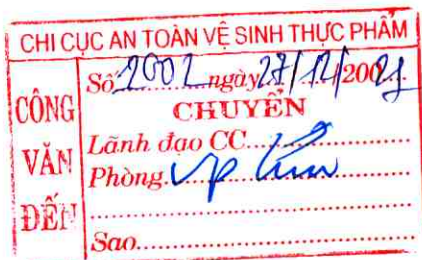 CHI CỤC AN TOÀN VỆ SINH THỰC PHẨM
CÔNG VĂN ĐẾN
Số 2002 ngày 27/12/200
CHUYỂN
Lãnh đạo CC
Phòng VP
Sao